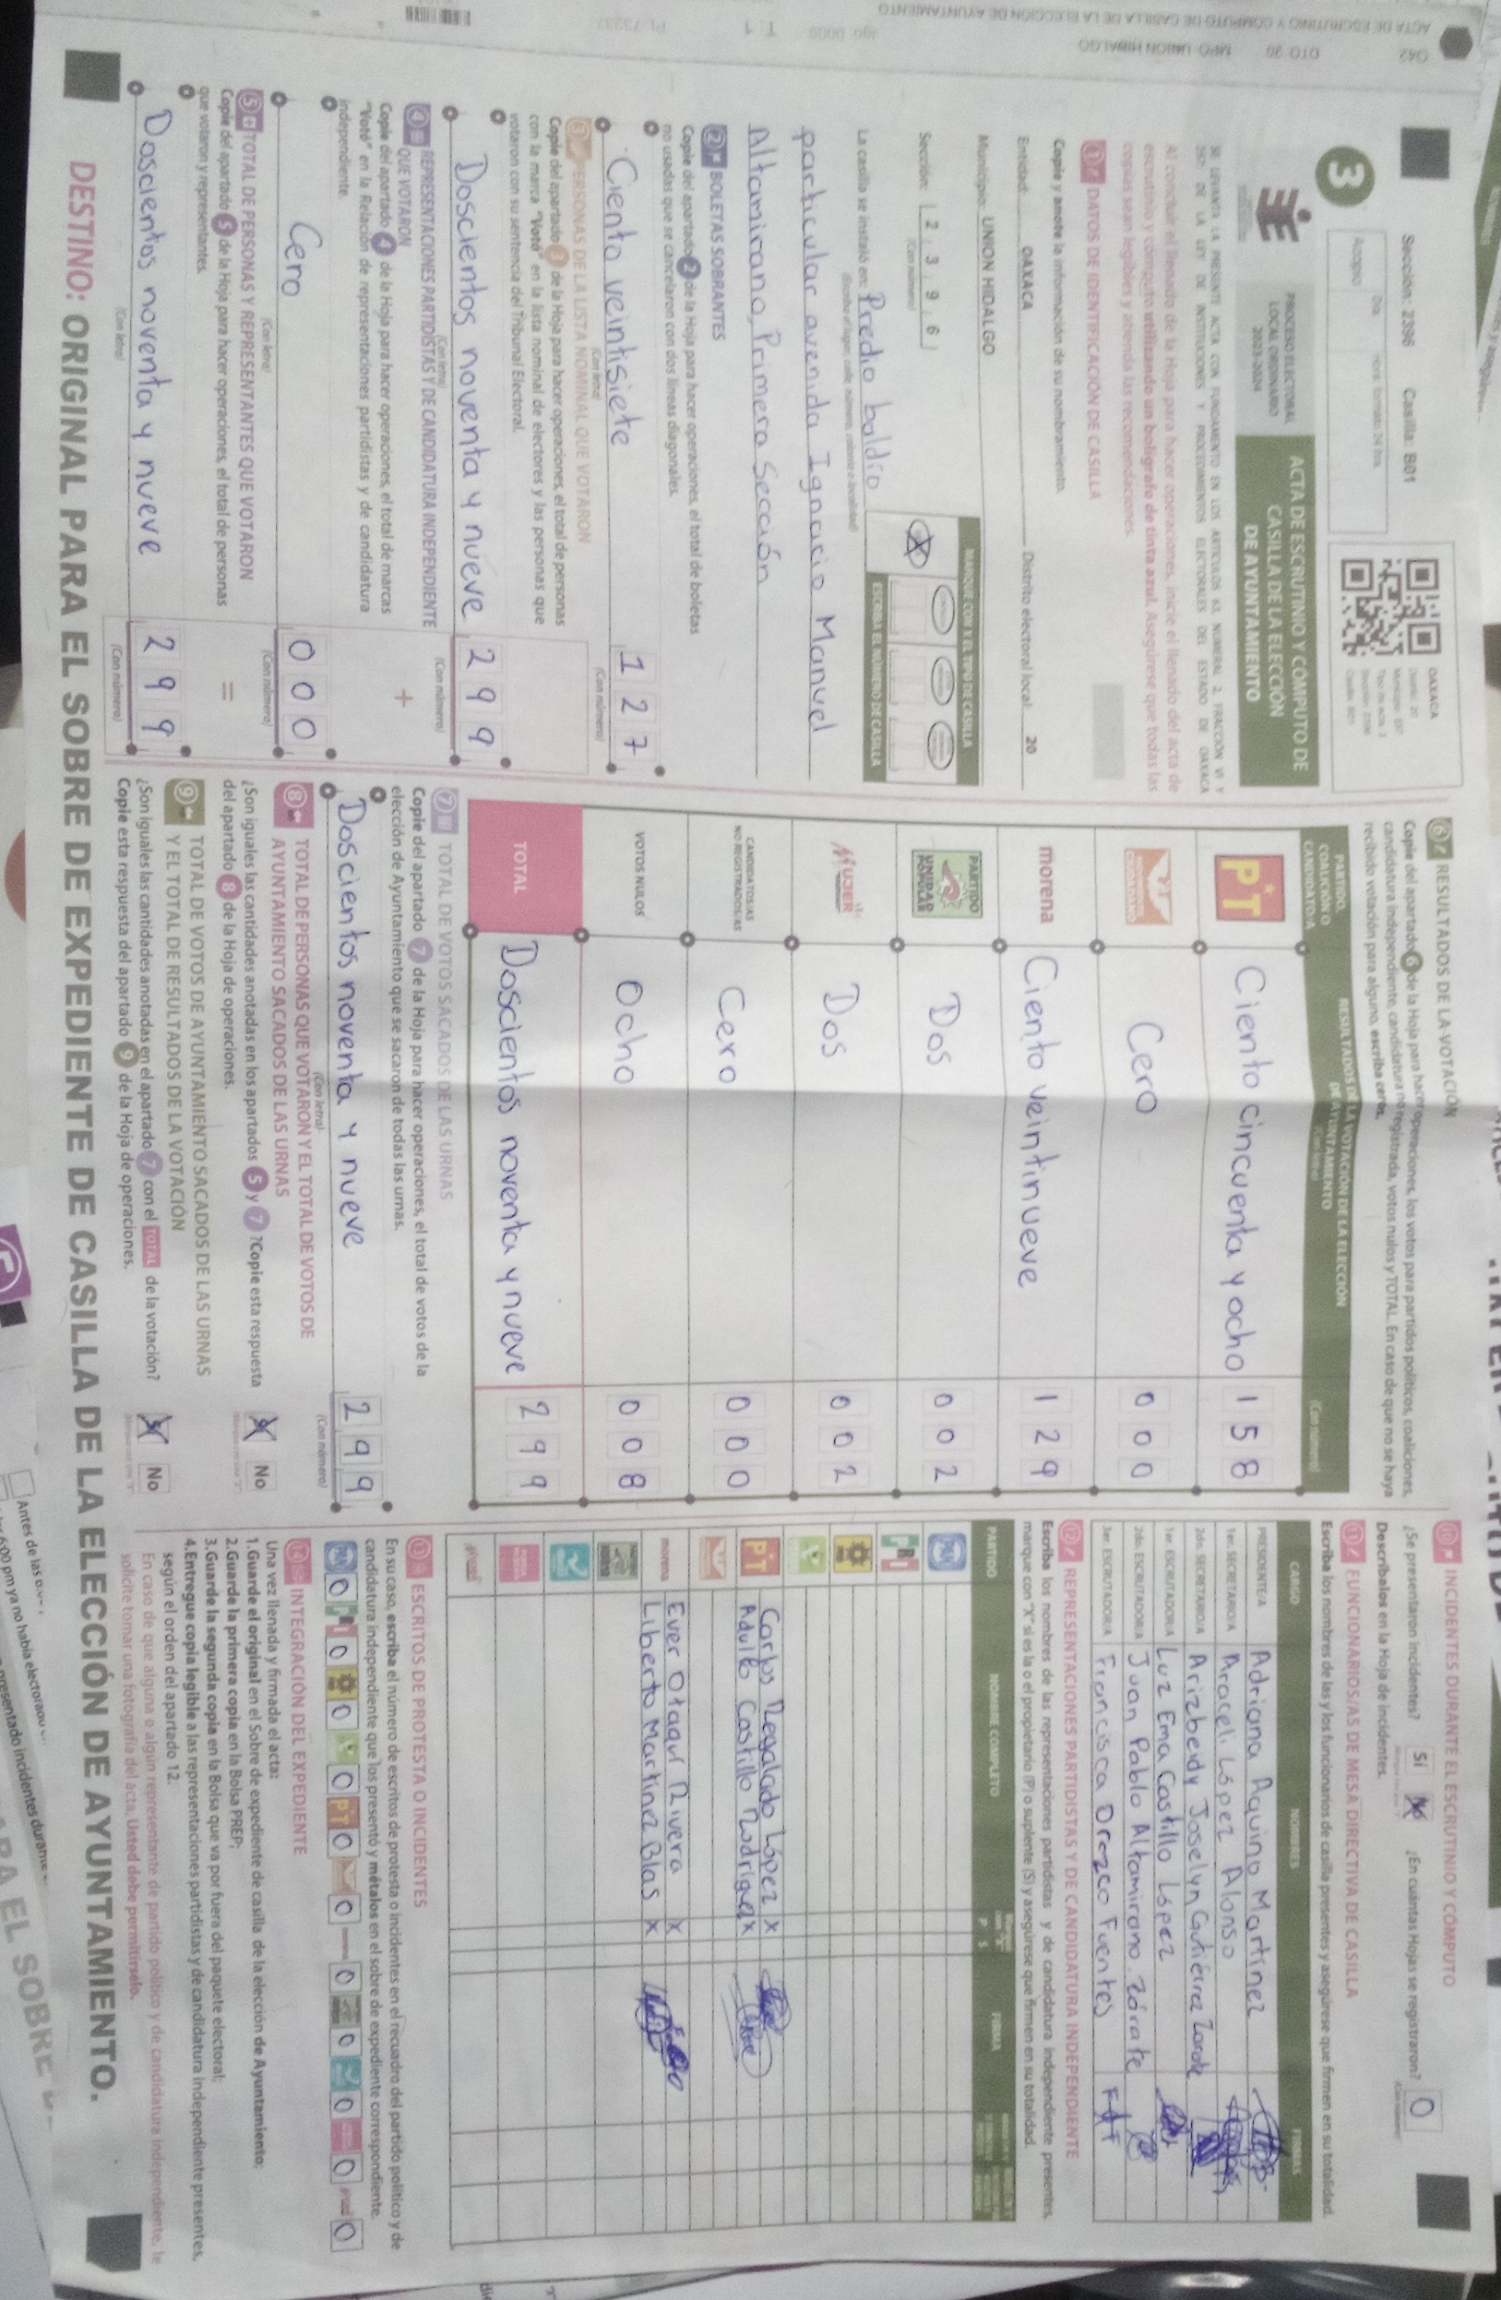 Sección: 2396 Casilla: B01
OAXACA
3
PROCESO ELECTORAL
LOCAL ORDINARIO
2023-2024
ACTA DE ESCRUTINIO Y CÓMPUTO DE
CASILLA DE LA ELECCIÓN
DE AYUNTAMIENTO
SE LEVANTA LA PRESENTE ACTA CON FUNDAMENTO EN LOS ARTÍCULOS
DE LA LEY DE INSTITUCIONES Y PROCEDIMIENTOS ELECTORALES DEL ESTADO DE OAXACA
Al concluir el llenado de la Hoja para hacer operaciones, inicie el llenado del acta de
escrutinio y cómputo utilizando un bolígrafo de tinta azul. Asegúrese que todas las
copias sean legibles y atienda las recomendaciones.
1 DATOS DE IDENTIFICACIÓN DE CASILLA
Copie y anote la información de su nombramiento.
Entidad: OAXACA Distrito electoral local: 20
Municipio: UNION HIDALGO
Sección: 2 3 9 6
(Con número)
MARQUE CON X EL TIPO DE CASILLA
X
ESCRIBA EL NÚMERO DE CASILLA
La casilla se instaló en: Predio baldío
particular avenida Ignacio Manuel
Altamirano, Primera Sección
2 BOLETAS SOBRANTES
Copie del apartado 2 de la Hoja para hacer operaciones, el total de boletas
no usadas que se cancelaron con dos líneas diagonales.
Ciento veintisiete 1 2 7
(Con letra) (Con número)
3 PERSONAS DE LA LISTA NOMINAL QUE VOTARON
Copie del apartado 3 de la Hoja para hacer operaciones, el total de personas
con la marca "Votó" en la lista nominal de electores y las personas que
votaron con su sentencia del Tribunal Electoral.
Doscientos noventa y nueve 2 9 9
(Con letra) (Con número)
4 REPRESENTACIONES PARTIDISTAS Y DE CANDIDATURA INDEPENDIENTE
QUE VOTARON
Copie del apartado 4 de la Hoja para hacer operaciones, el total de marcas
"Votó" en la Relación de representaciones partidistas y de candidatura
independiente.
+
Cero 0 0 0
(Con letra) (Con número)
5 TOTAL DE PERSONAS Y REPRESENTANTES QUE VOTARON
Copie del apartado 5 de la Hoja para hacer operaciones, el total de personas
que votaron y representantes.
=
Doscientos noventa y nueve 2 9 9
(Con letra) (Con número)
6 RESULTADOS DE LA VOTACIÓN
Copie del apartado 6 de la Hoja para hacer operaciones, los votos para partidos políticos, coaliciones,
candidatura independiente, candidatura no registrada, votos nulos y TOTAL. En caso de que no se haya
recibido votación para alguno, escriba ceros.
PARTIDO,
COALICIÓN O
CANDIDATO/A
RESULTADOS DE LA VOTACIÓN DE LA ELECCIÓN
DE AYUNTAMIENTO
(Con letra) (Con número)
PT Ciento cincuenta y ocho 1 5 8
Cero 0 0 0
morena Ciento veintinueve 1 2 9
PARTIDO UNIDAD POPULAR Dos 0 0 2
MUJER Dos 0 0 2
CANDIDATOS/AS
NO REGISTRADOS/AS Cero 0 0 0
VOTOS NULOS Ocho 0 0 8
TOTAL Doscientos noventa y nueve 2 9 9
7 TOTAL DE VOTOS SACADOS DE LAS URNAS
Copie del apartado 7 de la Hoja para hacer operaciones, el total de votos de la
elección de Ayuntamiento que se sacaron de todas las urnas.
Doscientos noventa y nueve 2 9 9
(Con letra) (Con número)
8 TOTAL DE PERSONAS QUE VOTARON Y EL TOTAL DE VOTOS DE
AYUNTAMIENTO SACADOS DE LAS URNAS
¿Son iguales las cantidades anotadas en los apartados 5 y 7? Copie esta respuesta
del apartado 8 de la Hoja de operaciones.
Sí No
9 TOTAL DE VOTOS DE AYUNTAMIENTO SACADOS DE LAS URNAS
Y EL TOTAL DE RESULTADOS DE LA VOTACIÓN
¿Son iguales las cantidades anotadas en el apartado 7 con el TOTAL de la votación?
Copie esta respuesta del apartado 9 de la Hoja de operaciones.
Sí No
10 INCIDENTES DURANTE EL ESCRUTINIO Y CÓMPUTO
¿Se presentaron incidentes? Sí No ¿En cuántas Hojas se registraron? 0
Descríbalos en la Hoja de incidentes.
11 FUNCIONARIOS/AS DE MESA DIRECTIVA DE CASILLA
Escriba los nombres de las y los funcionarios de casilla presentes y asegúrese que firmen en su totalidad.
CARGO NOMBRES FIRMAS
PRESIDENTE/A Adriana Aquino Martínez
1er. SECRETARIO/A Araceli López Alonso
2do. SECRETARIO/A Arizbeidy Joselyn Gutiérrez Zarate
1er. ESCRUTADOR/A Luz Ema Castillo López
2do. ESCRUTADOR/A Juan Pablo Altamirano Zárate
3er. ESCRUTADOR/A Francisca Orozco Fuentes
12 REPRESENTACIONES PARTIDISTAS Y DE CANDIDATURA INDEPENDIENTE
Escriba los nombres de las representaciones partidistas y de candidatura independiente presentes,
marque con "X" si es la o el propietario (P) o suplente (S) y asegúrese que firmen en su totalidad.
PARTIDO NOMBRE COMPLETO P S FIRMA
PAN
PRI
PT Carlos Regalado López X
Adulfo Castillo Rodríguez X
morena Ever Otaqui Rivera X
Liberto Martinez Blas X
13 ESCRITOS DE PROTESTA O INCIDENTES
En su caso, escriba el número de escritos de protesta o incidentes en el recuadro del partido político y de
candidatura independiente que los presentó y métalos en el sobre de expediente correspondiente.
0 0 0 0 0 0 0 0 0 0 0
14 INTEGRACIÓN DEL EXPEDIENTE
Una vez llenada y firmada el acta:
1.Guarde el original en el Sobre de expediente de casilla de la elección de Ayuntamiento;
2.Guarde la primera copia en la Bolsa PREP;
3.Guarde la segunda copia en la Bolsa que va por fuera del paquete electoral;
4.Entregue copia legible a las representaciones partidistas y de candidatura independiente presentes,
según el orden del apartado 12.
En caso de que alguna o algún representante de partido político y de candidatura independiente, le
solicite tomar una fotografía del acta, Usted debe permitírselo.
DESTINO: ORIGINAL PARA EL SOBRE DE EXPEDIENTE DE CASILLA DE LA ELECCIÓN DE AYUNTAMIENTO.